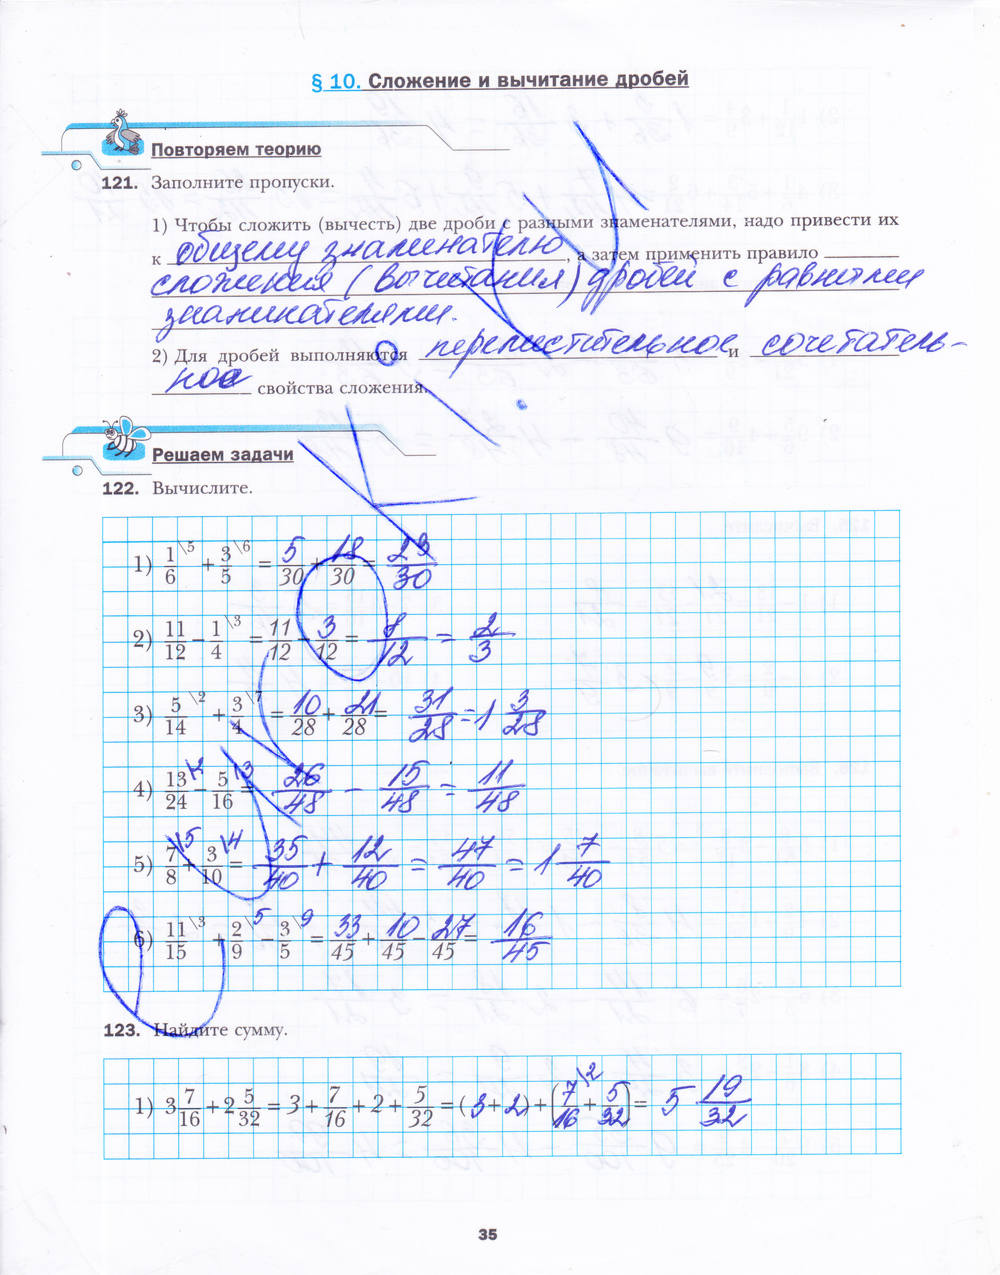 § 10. Сложение и вычитание дробей
Повторяем теорию
121. Заполните пропуски.
1) Чтобы сложить (вычесть) две дроби с разными знаменателями, надо привести их
к общему знаменателю, а затем применить правило
сложения (вычитания) дробей с равными
знаминателями.
2) Для дробей выполняются переместительное и сочетатель-
ное свойства сложения.
Решаем задачи
122. Вычислите.
1) 1/6 \5 + 3/5 \6 = 5/30 + 18/30 = 23/30
2) 11/12 − 1/4 \3 = 11/12 − 3/12 = 8/12 = 2/3
3) 5/14 \2 + 3/4 \7 = 10/28 + 21/28 = 31/28 = 1 3/28
4) 13/24 \2 − 5/16 \3 = 26/48 − 15/48 = 11/48
5) 7/8 \5 + 3/10 \4 = 35/40 + 12/40 = 47/40 = 1 7/40
6) 11/15 \3 + 2/9 \5 − 3/5 \9 = 33/45 + 10/45 − 27/45 = 16/45
123. Найдите сумму.
1) 3 7/16 + 2 5/32 = 3 + 7/16 + 2 + 5/32 = (3 + 2) + (7/16 \2 + 5/32) = 5 19/32
35